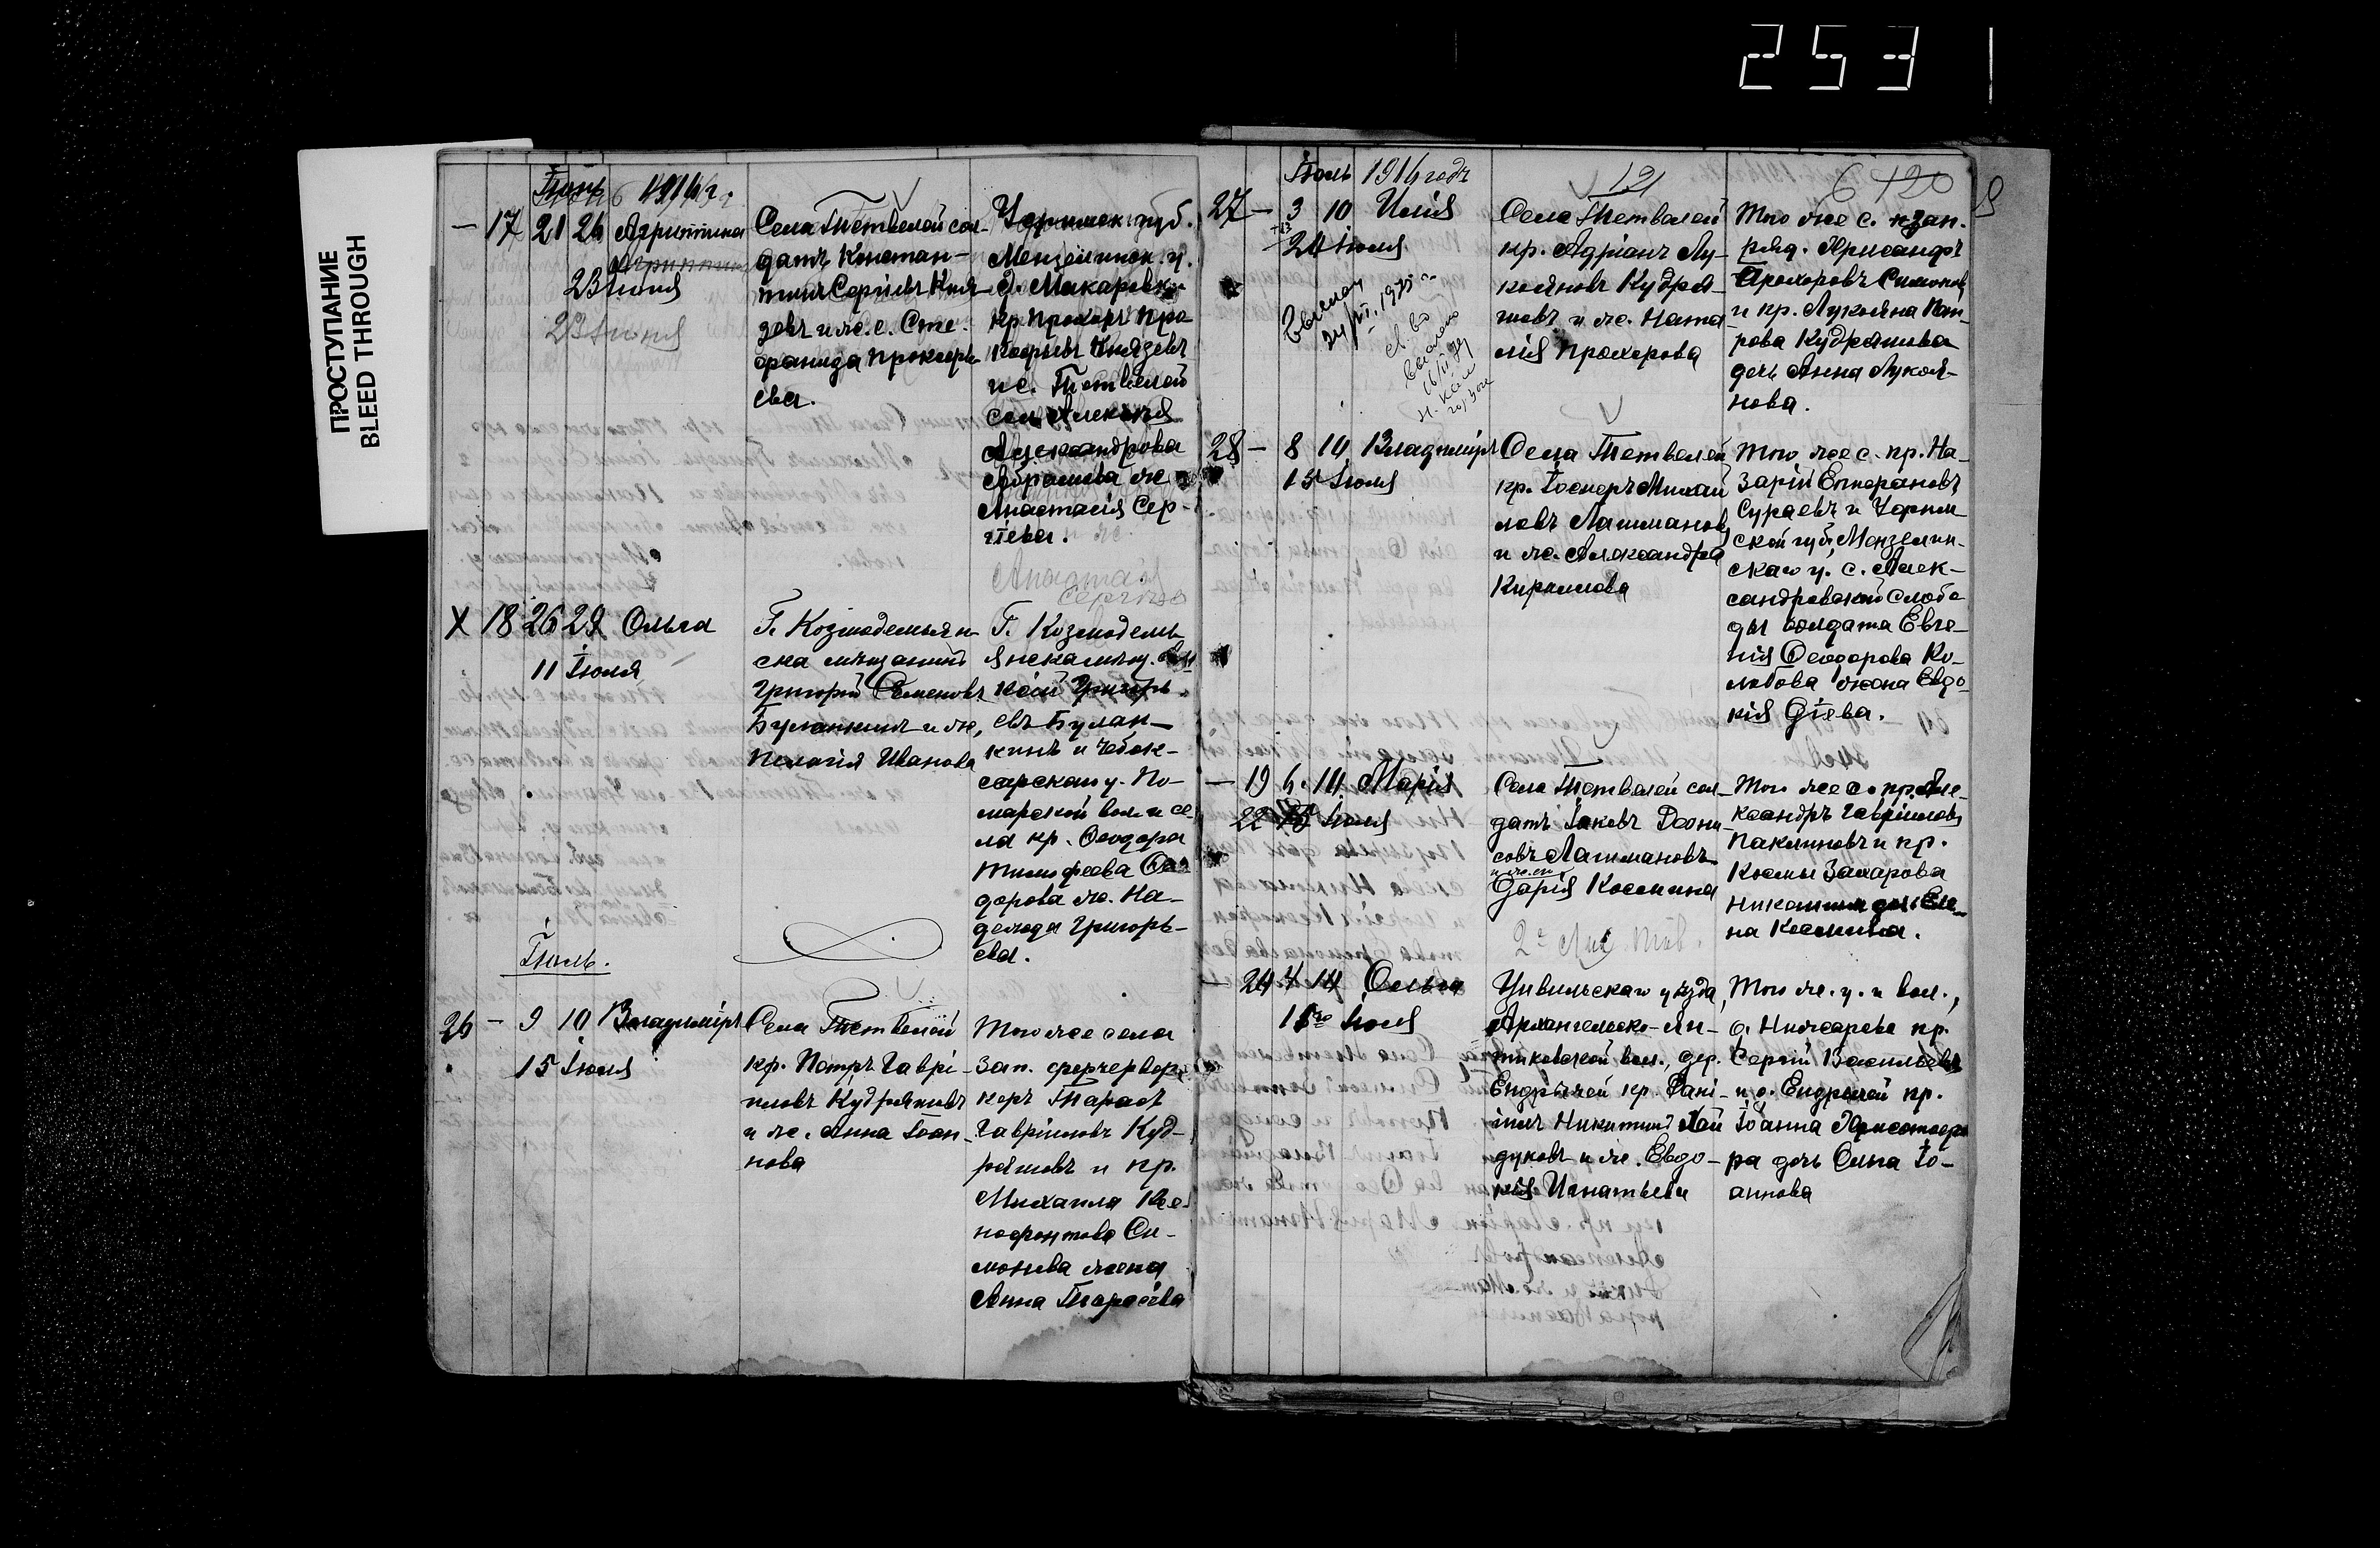 253
ПРОСТУПАНИЕ
BLEED THROUGH
Іюнь 1916 г.
— 17 21 26 Агриппина
23 Іюня
23 Іюня
Села Тетвелей сол-
датъ Констан-
тинъ Сергіевъ Кня-
зевъ и ж. е. Сте-
фанида Прохорь-
ева.
Уфимск. губ.
Мензелинск. у.
д. Макаровки
кр. Прохоръ Про-
Князевъ
и с. Тетвелей
сол. Алексѣя
Александрова
Абрамова же
Анастасія Сер-
гіева.
Анастасія
X 18 26 29 Ольга
11 Іюля
Г. Козмодемьян-
ска мѣщанинъ
Григорій Семеновъ
Буланкинъ и ж.
Пелагія Иванова
Г. Козмодемь-
янска мѣщ.
Григорь-
евъ Булан-
кинъ и Чебок-
сарскаго у. По-
марской вол. и се-
ла кр. Ѳеодора
Тимофеева Ѳео-
дорова ж. На-
дежда Григорь-
ева.
Іюль.
26 — 9 10 Владиміръ
15 Іюля
Села Тетвелей
кр. Петръ Гаврі-
иловъ Кудряшовъ
и ж. Анна Іоан-
нова
Того же села
зап. фейервер-
керъ Тарасъ
Гавріиловъ Куд-
ряшовъ и кр.
Михаила Ксе-
нофонтова Си-
монова жена
Анна Тарасіева
Іюль 1916 годъ
121
6 120
27 — 3 10 Илія
24 Іюля
Села Тетвелей
кр. Адріанъ Лу-
кояновъ Кудря-
шовъ и ж. Ната-
лія Прохорова
Того же с. зап.
ряд. Хрисанфъ
Прохоровъ Симонов
и кр. Лукояна Пет-
рова Кудряшова
дочь Анна Лукоя-
нова.
28 — 8 14 Владиміръ
15 Іюля
Села Тетвелей
кр. Іосифъ Михаи-
ловъ Лашмановъ
и ж. Александра
Кириллова
Того же с. кр. На-
зарій Епифановъ
Сураевъ и Уфим-
ской губ. Мензелин-
скаго у. с. Алек-
сандровской слобо-
ды солдата Евге-
нія Ѳеодорова Ко-
лотова жена Евдо-
кія Гіева.
— 19 6 14 Марія
22 Іюля
Села Тетвелей сол-
датъ Іаковъ Діони-
совъ Лашмановъ
и ж. его
Дарія Космина
Того же с. кр. Але-
ксандръ Гавріиловъ
Паклиновъ и кр.
Космы Захарова
Никашина дочь Еле-
на Космина.
— 20 7 14 Ольга
15го Іюля
Цивильскаго уѣзда,
Архангельско-Ян-
тиковской вол., дер.
Ендріялей кр. Дані-
илъ Никитинъ Хай-
дуковъ и ж. Евдо-
кія Игнатьева
Того ж. у. и вол.,
д. Нижарова кр.
Сергій Васильевъ
и д. Ендріялей кр.
Іоанна Христофо-
ра дочь Ольга Іо-
аннова